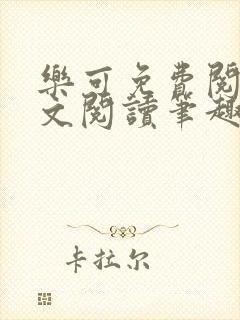 樂可免費閱
文閱讀筆趣
卡拉尔